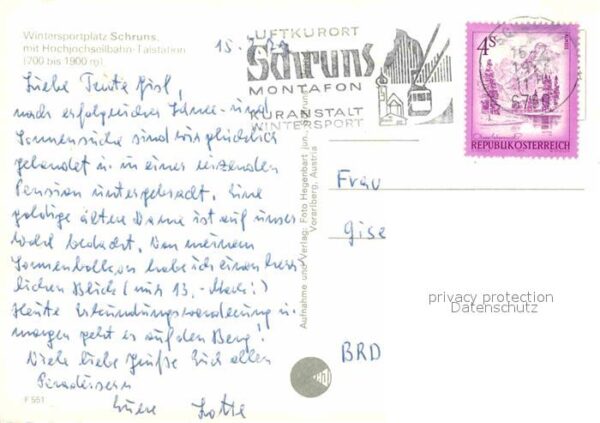 Wintersportplatz Schruns,
mit Hochjochseilbahn-Talstation
(700 bis 1900 m).
15.
Liebe Tante Gisl,
nach erfolgreicher Schnee- und
Sonnensuche sind wir glücklich
gelandet u. in einer reizenden
Pension untergebracht. Eine
goldige ältere Dame ist auf unser
Wohl bedacht. Von meinem
Sonnenbalkon habe ich einen herr-
lichen Blick (nur 13.-Mark!)
Heute Erkundungswanderung u.
morgen geht es auf den Berg!
Viele liebe Grüße Euch allen
Eure Lotte
F 551
LUFTKURORT
Schruns
MONTAFON
KURANSTALT
WINTERSPORT
4S
REPUBLIK ÖSTERREICH
Aufnahme und Verlag: Foto Hegenbart jun.
Vorarlberg, Austria
Frau
Gise
BRD
privacy protection
Datenschutz